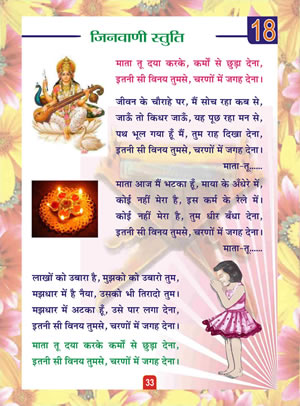 जिनवाणी स्तुति
18
माता तू दया करके, कर्मों से छुड़ा देना,
इतनी सी विनय तुमसे, चरणों में जगह देना।
जीवन के चौराहे पर, मैं सोच रहा कब से,
जाऊँ तो किधर जाऊँ, यह पूछ रहा मन से,
पथ भूल गया हूँ मैं, तुम राह दिखा देना,
इतनी सी विनय तुमसे, चरणों में जगह देना।
माता-तू......
माता आज मैं भटका हूँ, माया के अँधेरे में,
कोई नहीं मेरा है, इस कर्म के रेले में।
कोई नहीं मेरा है, तुम धीर बँधा देना,
इतनी सी विनय तुमसे, चरणों में जगह देना।
माता-तू......
लाखों को उबारा है, मुझको को उबारो तुम,
मझधार में है नैया, उसको भी तिरादो तुम।
मझधार में अटका हूँ, उसे पार लगा देना,
इतनी सी विनय तुमसे, चरणों में जगह देना।
माता तू दया करके, कर्मों से छुड़ा देना,
इतनी सी विनय तुमसे, चरणों में जगह देना।
33